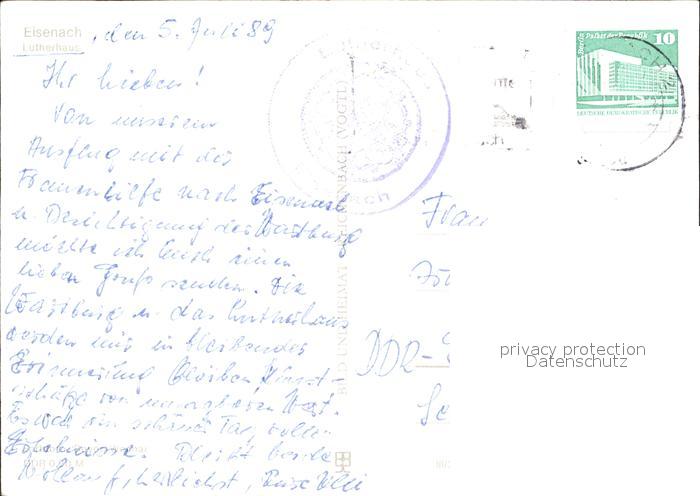 Eisenach
Lutherhaus
, den 5. Juli 89
Ihr Lieben!
Von unserem
Ausflug mit der
Frauenhilfe nach Eisenach
u. Besichtigung der Wartburg
möchte ich Euch einen
lieben Gruß senden. Die
Wartburg u. das Lutherhaus
werden mir in bleibender
Erinnerung bleiben Kunst-
schätze von Wert.
Es war ein schöner Tag voller
Erlebnisse. Bleibt beide
herzlichst,
BILD UND HEIMAT REICHENBACH (VOGTL)
Berlin, Palast der Republik
10
DEUTSCHE DEMOKRATISCHE REPUBLIK
Frau
DDR-
privacy protection
Datenschutz